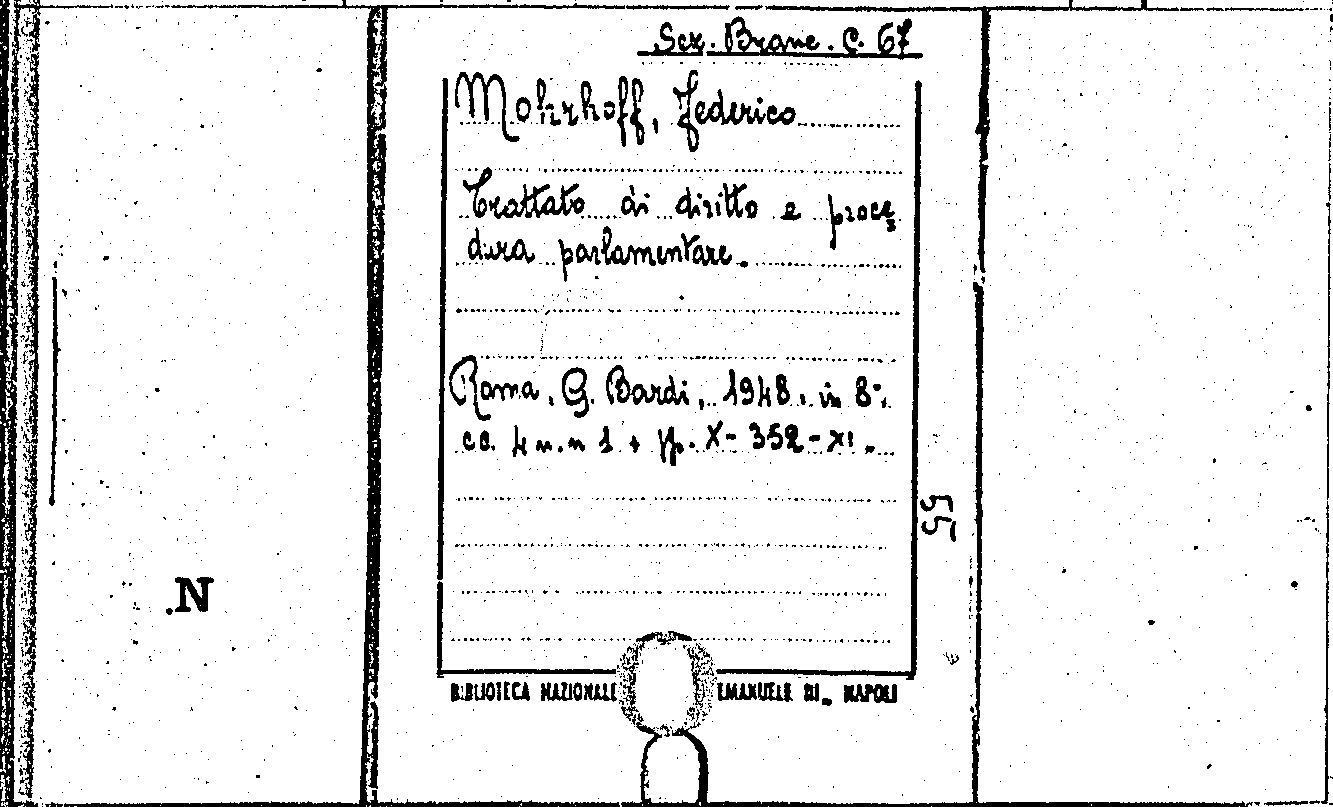 Sez. Branc. C. 67
Mohrhoff, Federico
Trattato di diritto e proce
dura parlamentare.
Roma, G. Bardi, 1948. in 8°.
cc. 4 n.n 1 + pp. X - 352 - XI.
55
.N
BIBLIOTECA NAZIONALE EMANUELE III_ NAPOLI